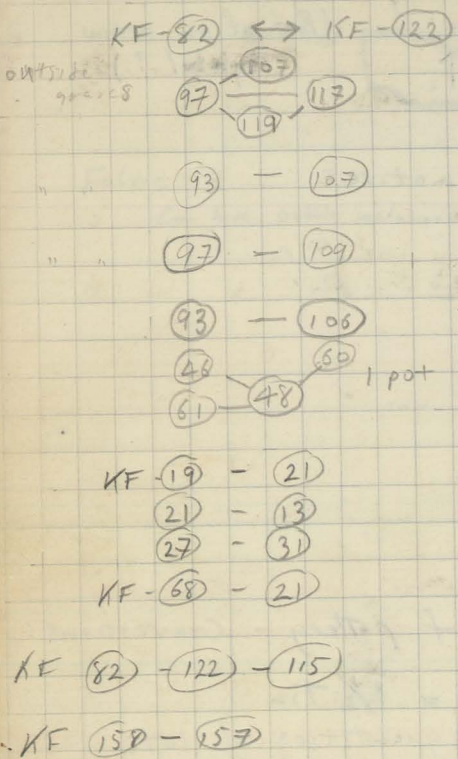 KF-82 ↔ KF-122
107
outside
97 — 117
119
" " 93 — 107
" " 97 — 109
93 — 106
46 60
48 1 pot
61
KF-19 - 21
21 - 13
27 - 31
KF-68 - 21
KF 82 - 122 - 115
KF 158 - 157